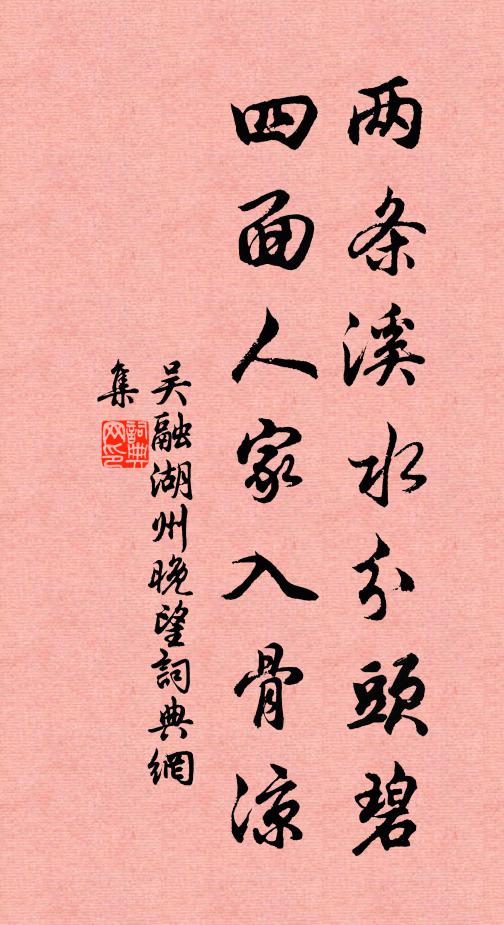 两条溪水分头碧
四面人家入骨凉
吴融湖州晚望詞典網
集
詞典网印